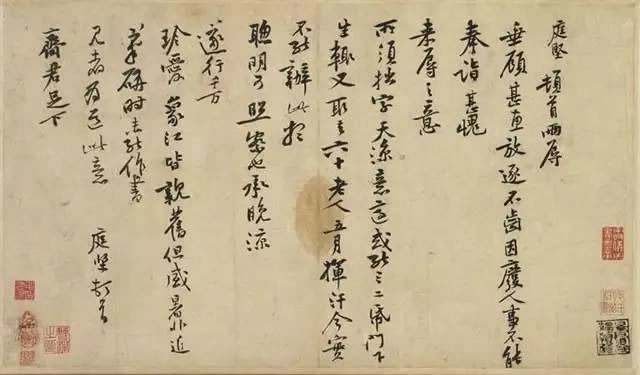 庭堅頓首兩辱
垂顧甚惠放逐不齒因廢人事不能
奉詣甚愧
来辱之意
所須拙字天涼意適或能三二紙門下
生輒又取去六十老人五月揮汗今實
不能辦此想
聰明可照察也承晚涼
遂行千万
珍愛象江皆親舊但盛暑非近
筆研時未能作書
見者為道此意 庭堅頓首
齊君足下